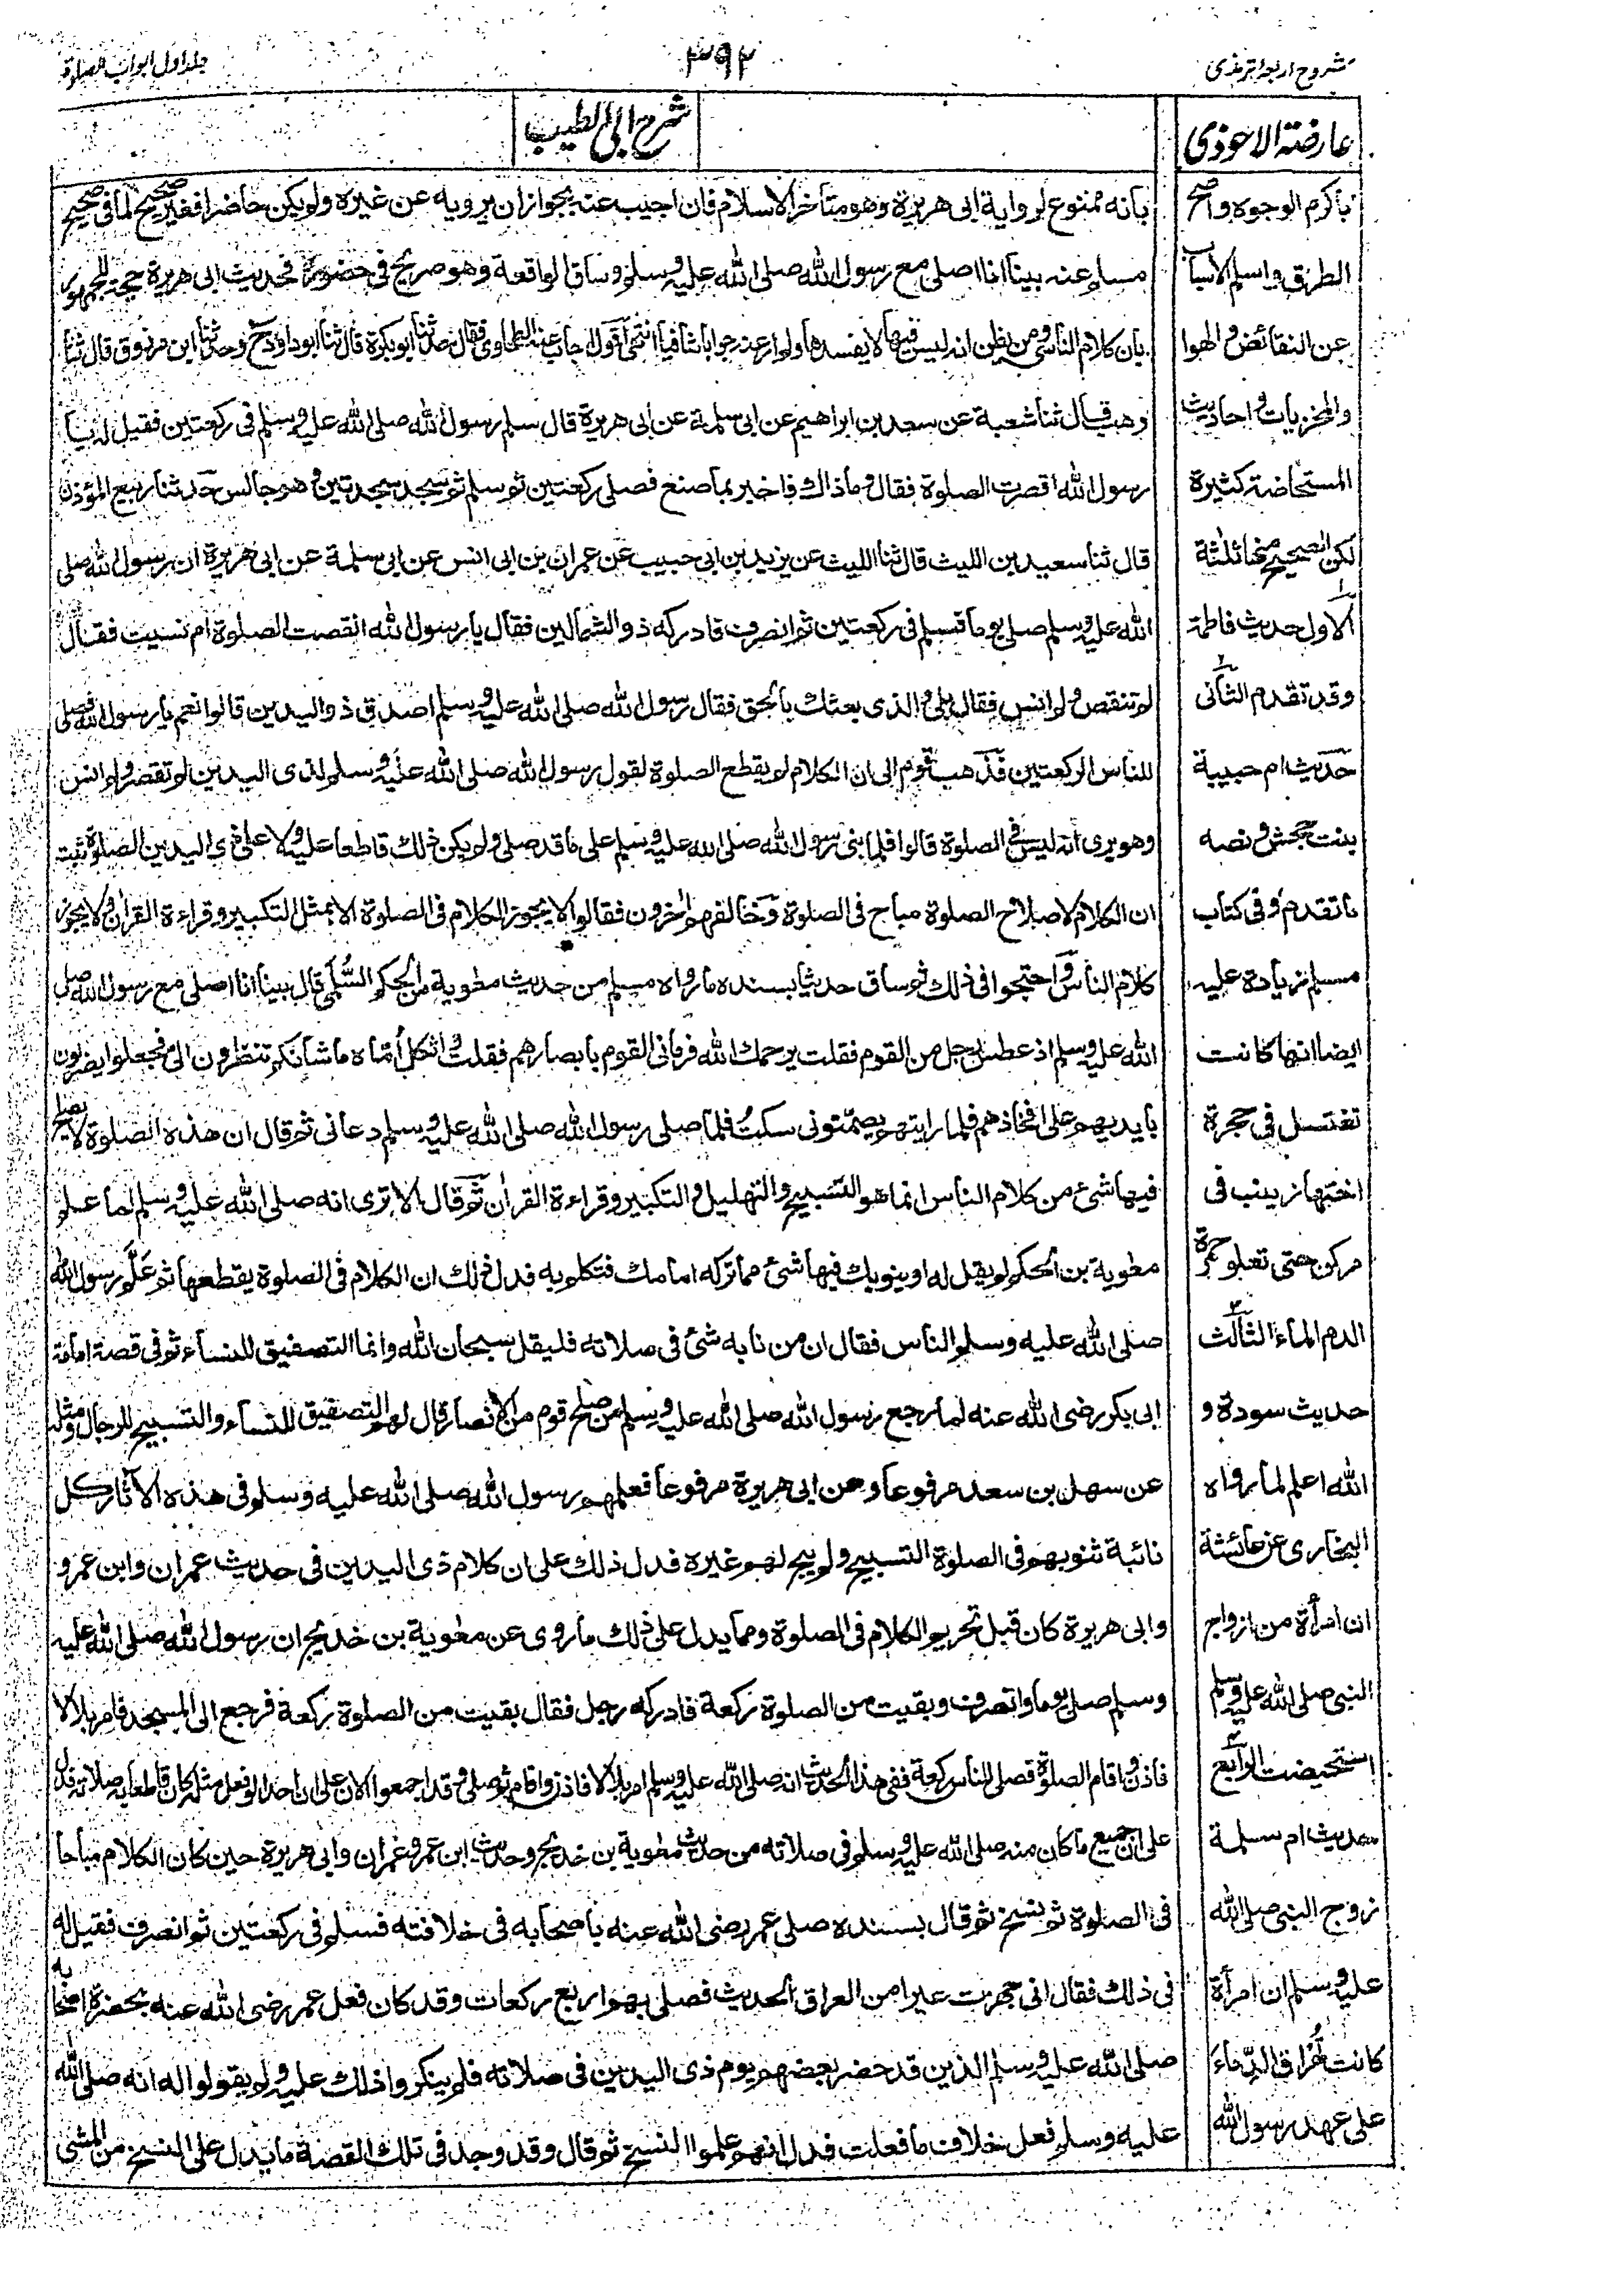 شروح اربعۂ ترمذی
٣٩٢
جلد اول ابواب الصلوة
عارضة الاحوذی
شرح ابی الطیب
بأکرم الوجوه واصح
الطرق واسلم الاسباب
عن النقائض والهوا
والمخزیات واحادیث
المستحاضة کثیرة
لکن الصحیح منها ثلثة
الاول حدیث فاطمة
وقد تقدم الثانی
حدیث ام حبیبة
بنت جحش ونصه
ما تقدم وفی کتاب
مسلم زیادة علیه
ایضا انها کانت
تغتسل فی حجرة
اختها زینب فی
مرکن حتی تعلو حمرة
الدم الماء الثالث
حدیث سودة و
الله اعلم لما رواه
البخاری عن عائشة
ان امرأة من ازواج
النبی صلی الله علیه وسلم
استحیضت الرابع
حدیث ام سلمة
زوج النبی صلی الله
علیه وسلم ان امرأة
کانت تُهْراق الدِّماءَ
علی عهد رسول الله
بأنه ممنوع لروایة ابی هریرة وهو متأخر الاسلام فان اجیب عنه بجواز ان یرویه عن غیره ولم یکن حاضرا فغیر صحیح لما فی صحیح
مسلم عنه بینا انا اصلی مع رسول الله صلی الله علیه وسلم وساق الواقعة وهو صریح فی حضوره فحدیث ابی هریرة حجة للجمهور
بان کلام الناسی ومن یظن انه لیس فیها لا یفسدها ولم ار عنه جوابا شافیا انتهی اقول اجاب عنه الطحاوی فقال حدثنا ابو بکرة قال ثنا ابو داود ح وحدثنا ابن مرزوق قال ثنا
وهب قال ثنا شعبة عن سعد بن ابراهیم عن ابی سلمة عن ابی هریرة قال سلم رسول الله صلی الله علیه وسلم فی رکعتین فقیل له یا
رسول الله اقصرت الصلوة فقال وما ذاك فاخبر بما صنع فصلی رکعتین ثم سلم ثم سجد سجدتین وهو جالس حدثنا ربیع المؤذن
قال ثنا سعید بن اللیث قال ثنا اللیث عن یزید بن ابی حبیب عن عمران بن ابی انس عن ابی سلمة عن ابی هریرة ان رسول الله صلی
الله علیه وسلم صلی یوما فسلم فی رکعتین ثم انصرف فادرکه ذو الشمالین فقال یا رسول الله انقصت الصلوة ام نسیت فقال
لم تنقص ولم انس فقال بلی والذی بعثك بالحق فقال رسول الله صلی الله علیه وسلم اصدق ذو الیدین قالوا نعم یا رسول الله فصلی
للناس الرکعتین فذهب قوم الی ان الکلام لم یقطع الصلوة لقول رسول الله صلی الله علیه وسلم لذی الیدین لم تقصر ولم انس
وهو یری انه لیس فی الصلوة قالوا فلما بنی رسول الله صلی الله علیه وسلم علی ما قد صلی ولم یکن ذلك قاطعا علیه ولا علی ذی الیدین الصلوة ثبت
ان الکلام لاصلاح الصلوة مباح فی الصلوة وخالفهم اٰخرون فقالوا لا یجوز الکلام فی الصلوة الا بمثل التکبیر وقراءة القراٰن ولا یجوز
کلام الناس واحتجوا فی ذلك ثم ساق حدیثا بسنده ما رواه مسلم من حدیث معٰویة بن الحکم السُّلَمی قال بینا انا اصلی مع رسول الله صلی
الله علیه وسلم اذ عطس رجل من القوم فقلت یرحمك الله فرمانی القوم بأبصارهم فقلت واثکل اُمّاه ما شأنکم تنظرون الیّ فجعلوا یضربون
بأیدیهم علی افخاذهم فلما رایتهم یصمّتونی سکتُّ فلما صلی رسول الله صلی الله علیه وسلم دعانی ثم قال ان هذه الصلوة لا یصلح
فیها شئ من کلام الناس انما هو التسبیح والتهلیل والتکبیر وقراءة القراٰن ثم قال الا تری انه صلی الله علیه وسلم لما علم
معٰویة بن الحکم لم یقل له او ینوبك فیها شئ مما ترکه امامك فتکلم به فدل ذلك ان الکلام فی الصلوة یقطعها ثم عَلَّم رسول الله
صلی الله علیه وسلم الناس فقال ان من نابه شئ فی صلاته فلیقل سبحان الله وانما التصفیق للنساء ثم فی قصة امامة
ابی بکر رضی الله عنه لما رجع رسول الله صلی الله علیه وسلم من صلح قوم من الانصار قال لهم التصفیق للنساء والتسبیح للرجال ومثله
عن سهل بن سعد مرفوعا وعن ابی هریرة مرفوعا فعلمهم رسول الله صلی الله علیه وسلم فی هذه الاٰثار کل
نائبة تنوبهم فی الصلوة التسبیح ولم یبح لهم غیره فدل ذلك علی ان کلام ذی الیدین فی حدیث عمران وابن عمر و
وابی هریرة کان قبل تحریم الکلام فی الصلوة ومما یدل علی ذلك ما روی عن معٰویة بن خدیج ان رسول الله صلی الله علیه
وسلم صلی یوما وانصرف وبقیت من الصلوة رکعة فادرکه رجل فقال بقیت من الصلوة رکعة فرجع الی المسجد فامر بلالا
فاذن واقام الصلوة فصلی للناس رکعة ففی هذا الحدیث انه صلی الله علیه وسلم امر بلالا فاذن واقام ثم صلی وقد اجمعوا الاٰن علی ان احدا لو فعل مثله کان قاطعا به صلاته فدل
علی ان جمیع ما کان منه صلی الله علیه وسلم فی صلاته من حدیث معٰویة بن خدیج وحدیث ابن عمر وعمران وابی هریرة حین کان الکلام مباحا
فی الصلوة ثم نسخ ثم قال بسنده صلی عمر رضی الله عنه بأصحابه فی خلافته فسلم فی رکعتین ثم انصرف فقیل له
فی ذلك فقال انی جهزت عیرا من العراق الحدیث فصلی بهم اربع رکعات وقد کان فعل عمر رضی الله عنه بحضرة اصحابه
صلی الله علیه وسلم الذین قد حضر بعضهم یوم ذی الیدین فی صلاته فلم ینکروا ذلك علیه ولم یقولوا له انه صلی الله
علیه وسلم فعل خلاف ما فعلت فدل انهم علموا النسخ ثم قال وقد وجد فی تلك القصة ما یدل علی النسخ من المشی